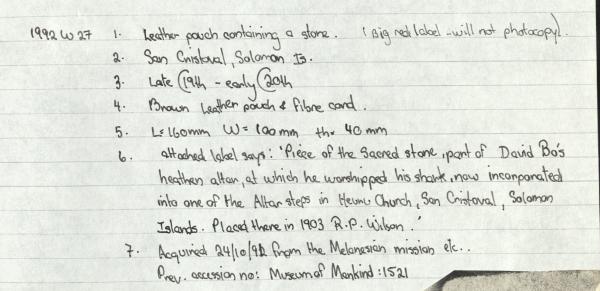 1992 W 27 1. Leather pouch containing a stone. (Big red label - will not photocopy).
2. San Cristoval, Solomon Is.
3. Late C19th - early C20th
4. Brown leather pouch & fibre cord.
5. L= 160mm W= 100mm th= 40mm
6. attached label says: 'Piece of the sacred stone, part of David Bo's
heathen altar, at which he worshipped his shark, now incorporated
into one of the Altar steps in Heuru Church, San Cristoval, Solomon
Islands. Placed there in 1903 R.P. Wilson.'
7. Acquired 24/10/92 from the Melanesian mission etc..
Prev. accession no: Museum of Mankind: 1521